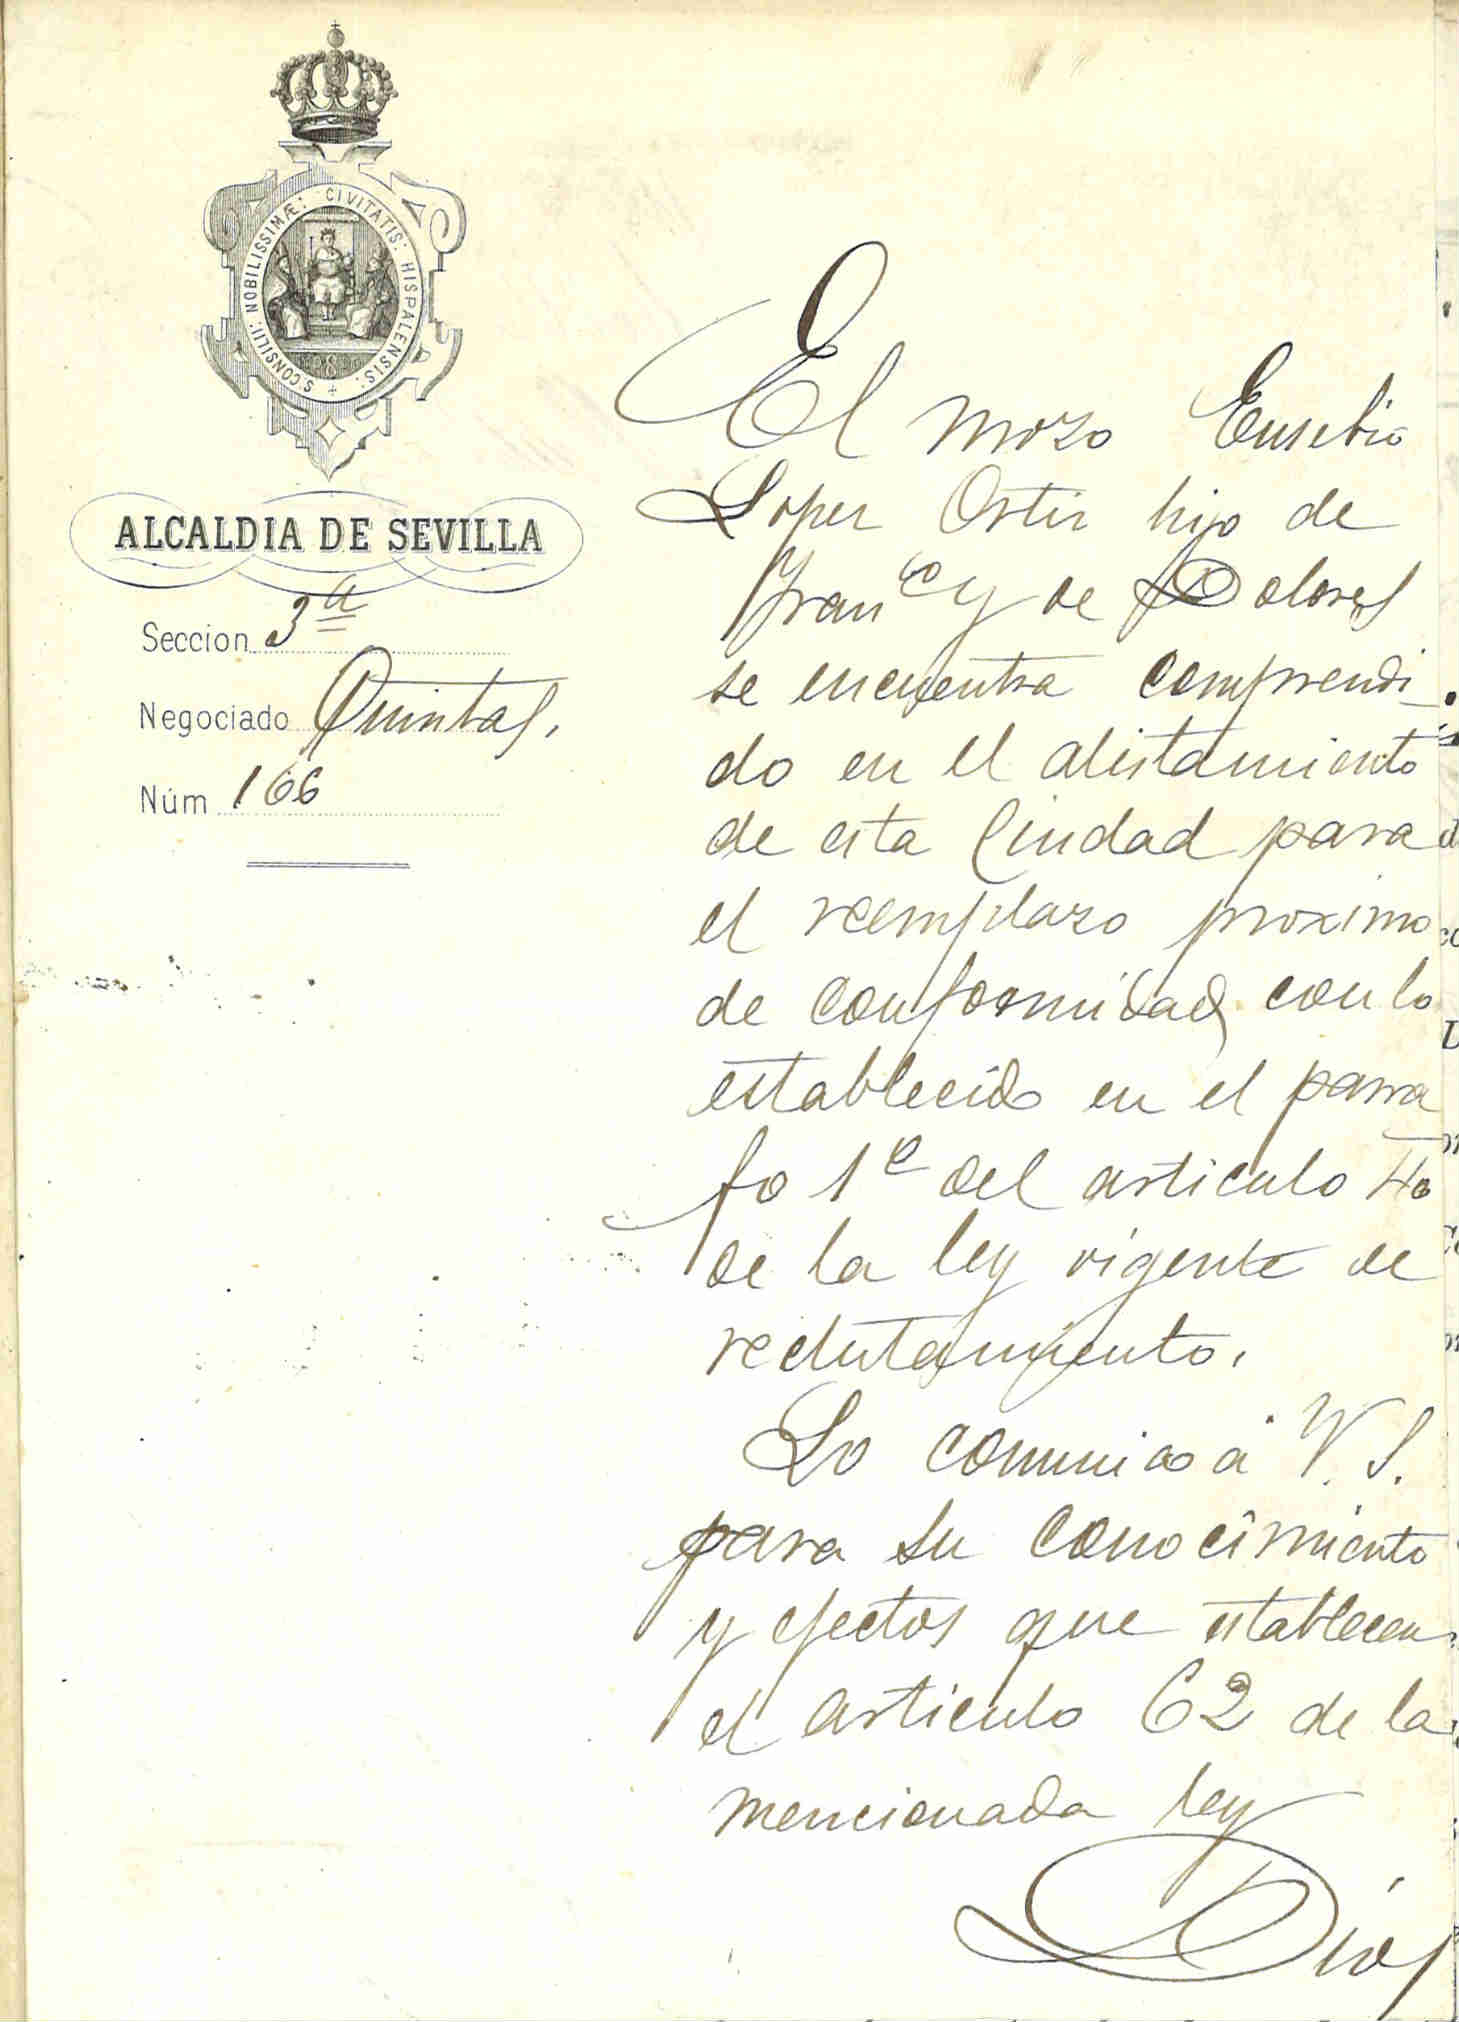 S: CONSILII: NOBILISSIMÆ: CIVITATIS: HISPALENSIS: +
NO8DO
ALCALDIA DE SEVILLA
Seccion 3ª
Negociado Quintas,
Núm 166
El mozo Eusebio
Lopez Ortiz hijo de
Franco y de Dolores
se encuentra comprendi-
do en el alistamiento
de esta Ciudad para
el reemplazo proximo
de conformidad con lo
establecido en el parra
fo 1º del articulo 40
de la ley vigente de
reclutamiento.
Lo comunico á V. S.
para su conocimiento
y efectos que establecen
el articulo 62 de la
mencionada ley
Dios